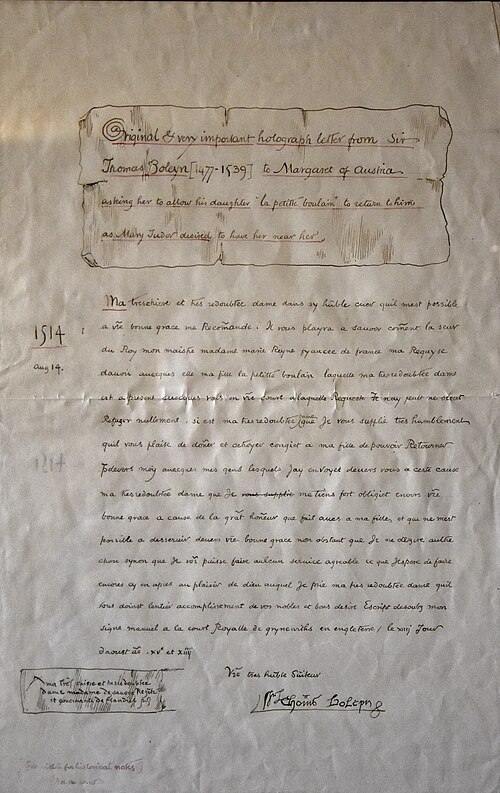 Original & very important holograph letter from Sir
Thomas Boleyn [1477-1539] to Margaret of Austria
asking her to allow his daughter "la petite boulain" to return to him
as Mary Tudor desired to have her near her.
1514
Aug 14.
1217
Ma treschiere et tres redoutee dame dans sy huble cuer quil mest possible
a vre bonne grace me Recomande. Il vous playra a savoir coment la seur
du Roy mon maistre madame marie Reyne fyancee de france ma Requyse
davoir avecques elle ma fille la petitte boulain laquelle ma tresredoubtee dame
est a present avecques vous en vre court a laquelle Requeste Je nay peult ne sceut
Refuzer nullement, si est ma tresredoubtee que Je vous supplie tres humblement
quil vous plaise de doner et octroyer congiet a ma fille de pouvoir Retourner
pdevers moy avecques mes gens lesquels Jay envoyet devers vous a ceste cause
ma tresredoubtee dame que Je vous supplie me tiens fort obligiet envers vre
bonne grace a cause de la grat honeur que fait aves a ma fille, et que ne mest
possible a desservir devers vre bonne grace non obstant que Je ne dezire aultre
chose synon que Je vos puisse faire aulcun service agreable ce que Jespere de faire
encores cy en apres au plaisir de dieu auquel Je prie ma tres redoubtee dame quil
vous doinst lentier accomplissement de vos nobles et bons desirs Escript desoubz mon
signe manuel a la court Royalle de grynewiths en engleterre / le xiiij Jour
daoust as. xvc et xiiij
Vre tres huble Suiteur
Sr Thomas Boleyn
a ma tres chiere et tresredoubtee
dame madame de savoie Regente
et gouvernante de flandres
for historical notes